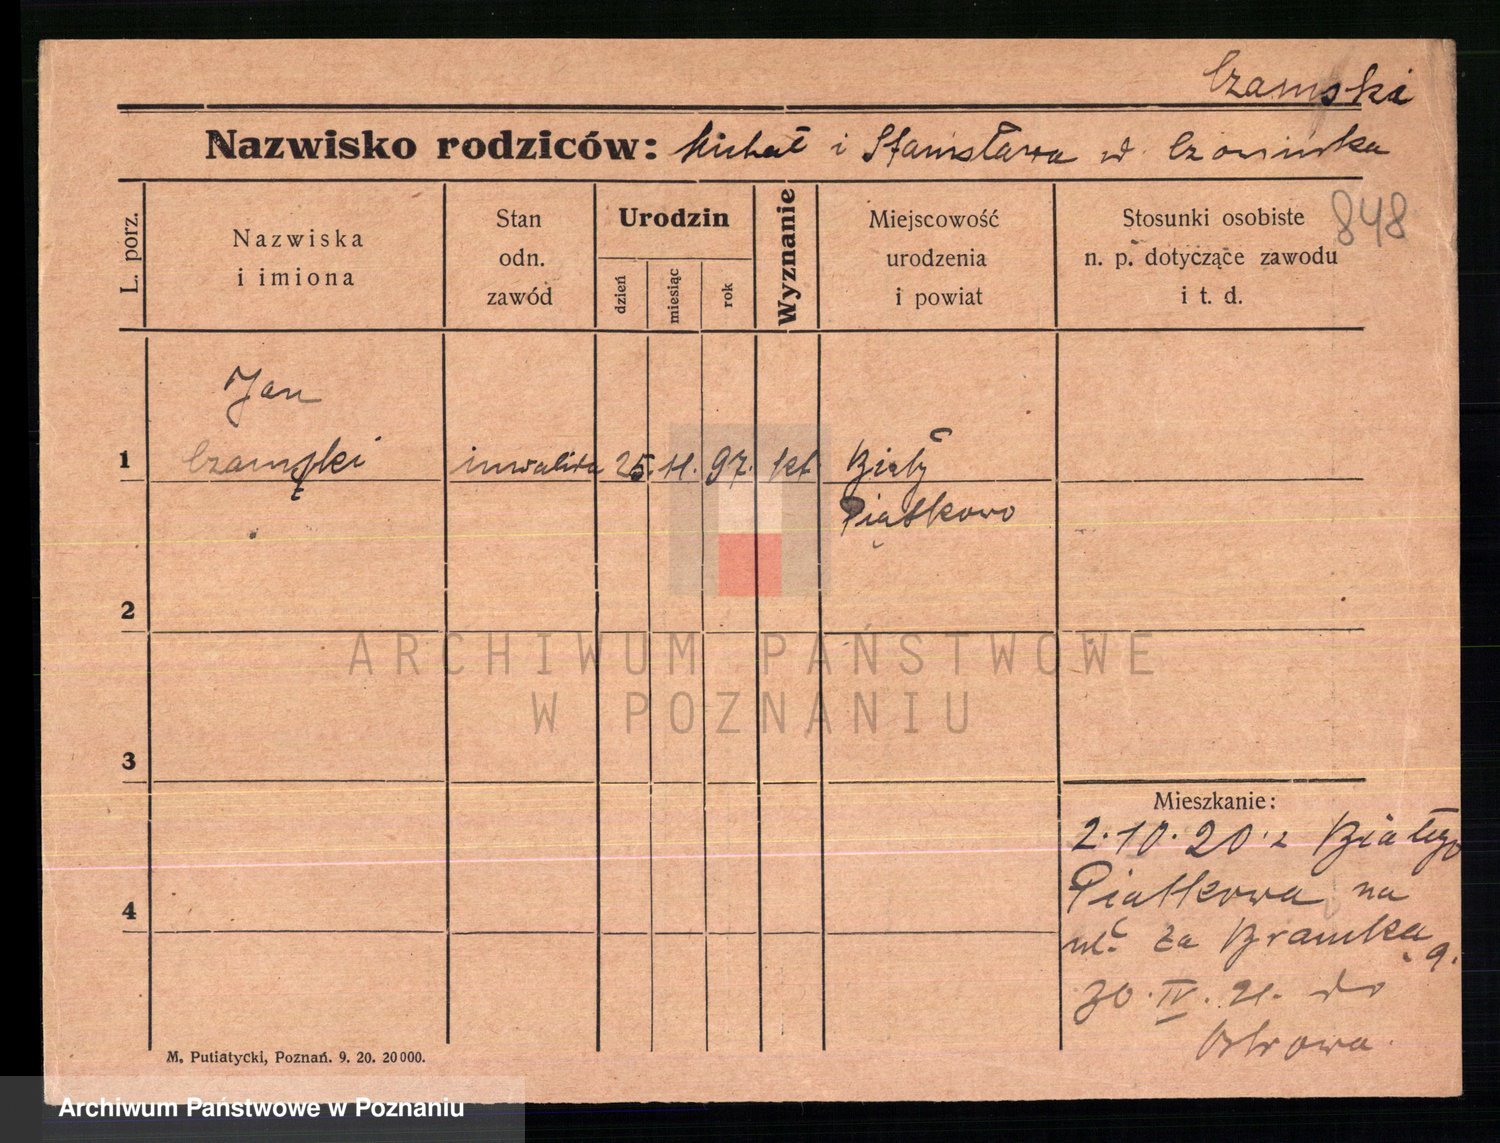 Czamski
Nazwisko rodziców: Michał i Stanisława
848
L. porz.
Nazwiska
i imiona
Stan
odn.
zawód
Urodzin
dzień
miesiąc
rok
Wyznanie
Miejscowość
urodzenia
i powiat
Stosunki osobiste
n. p. dotyczące zawodu
i t. d.
Jan
1 Czamski inwalida 25. 11. 97. kt. Biały
Piątkowo
2
ARCHIWUM PAŃSTWOWE
W POZNANIU
3
Mieszkanie:
2.10.20. z Białego
Piatkowa na
4
ul. Za Bramką 9.
30. IV. 21. do
Ostrowa.
M. Putiatycki, Poznań. 9. 20. 20000.
Archiwum Państwowe w Poznaniu